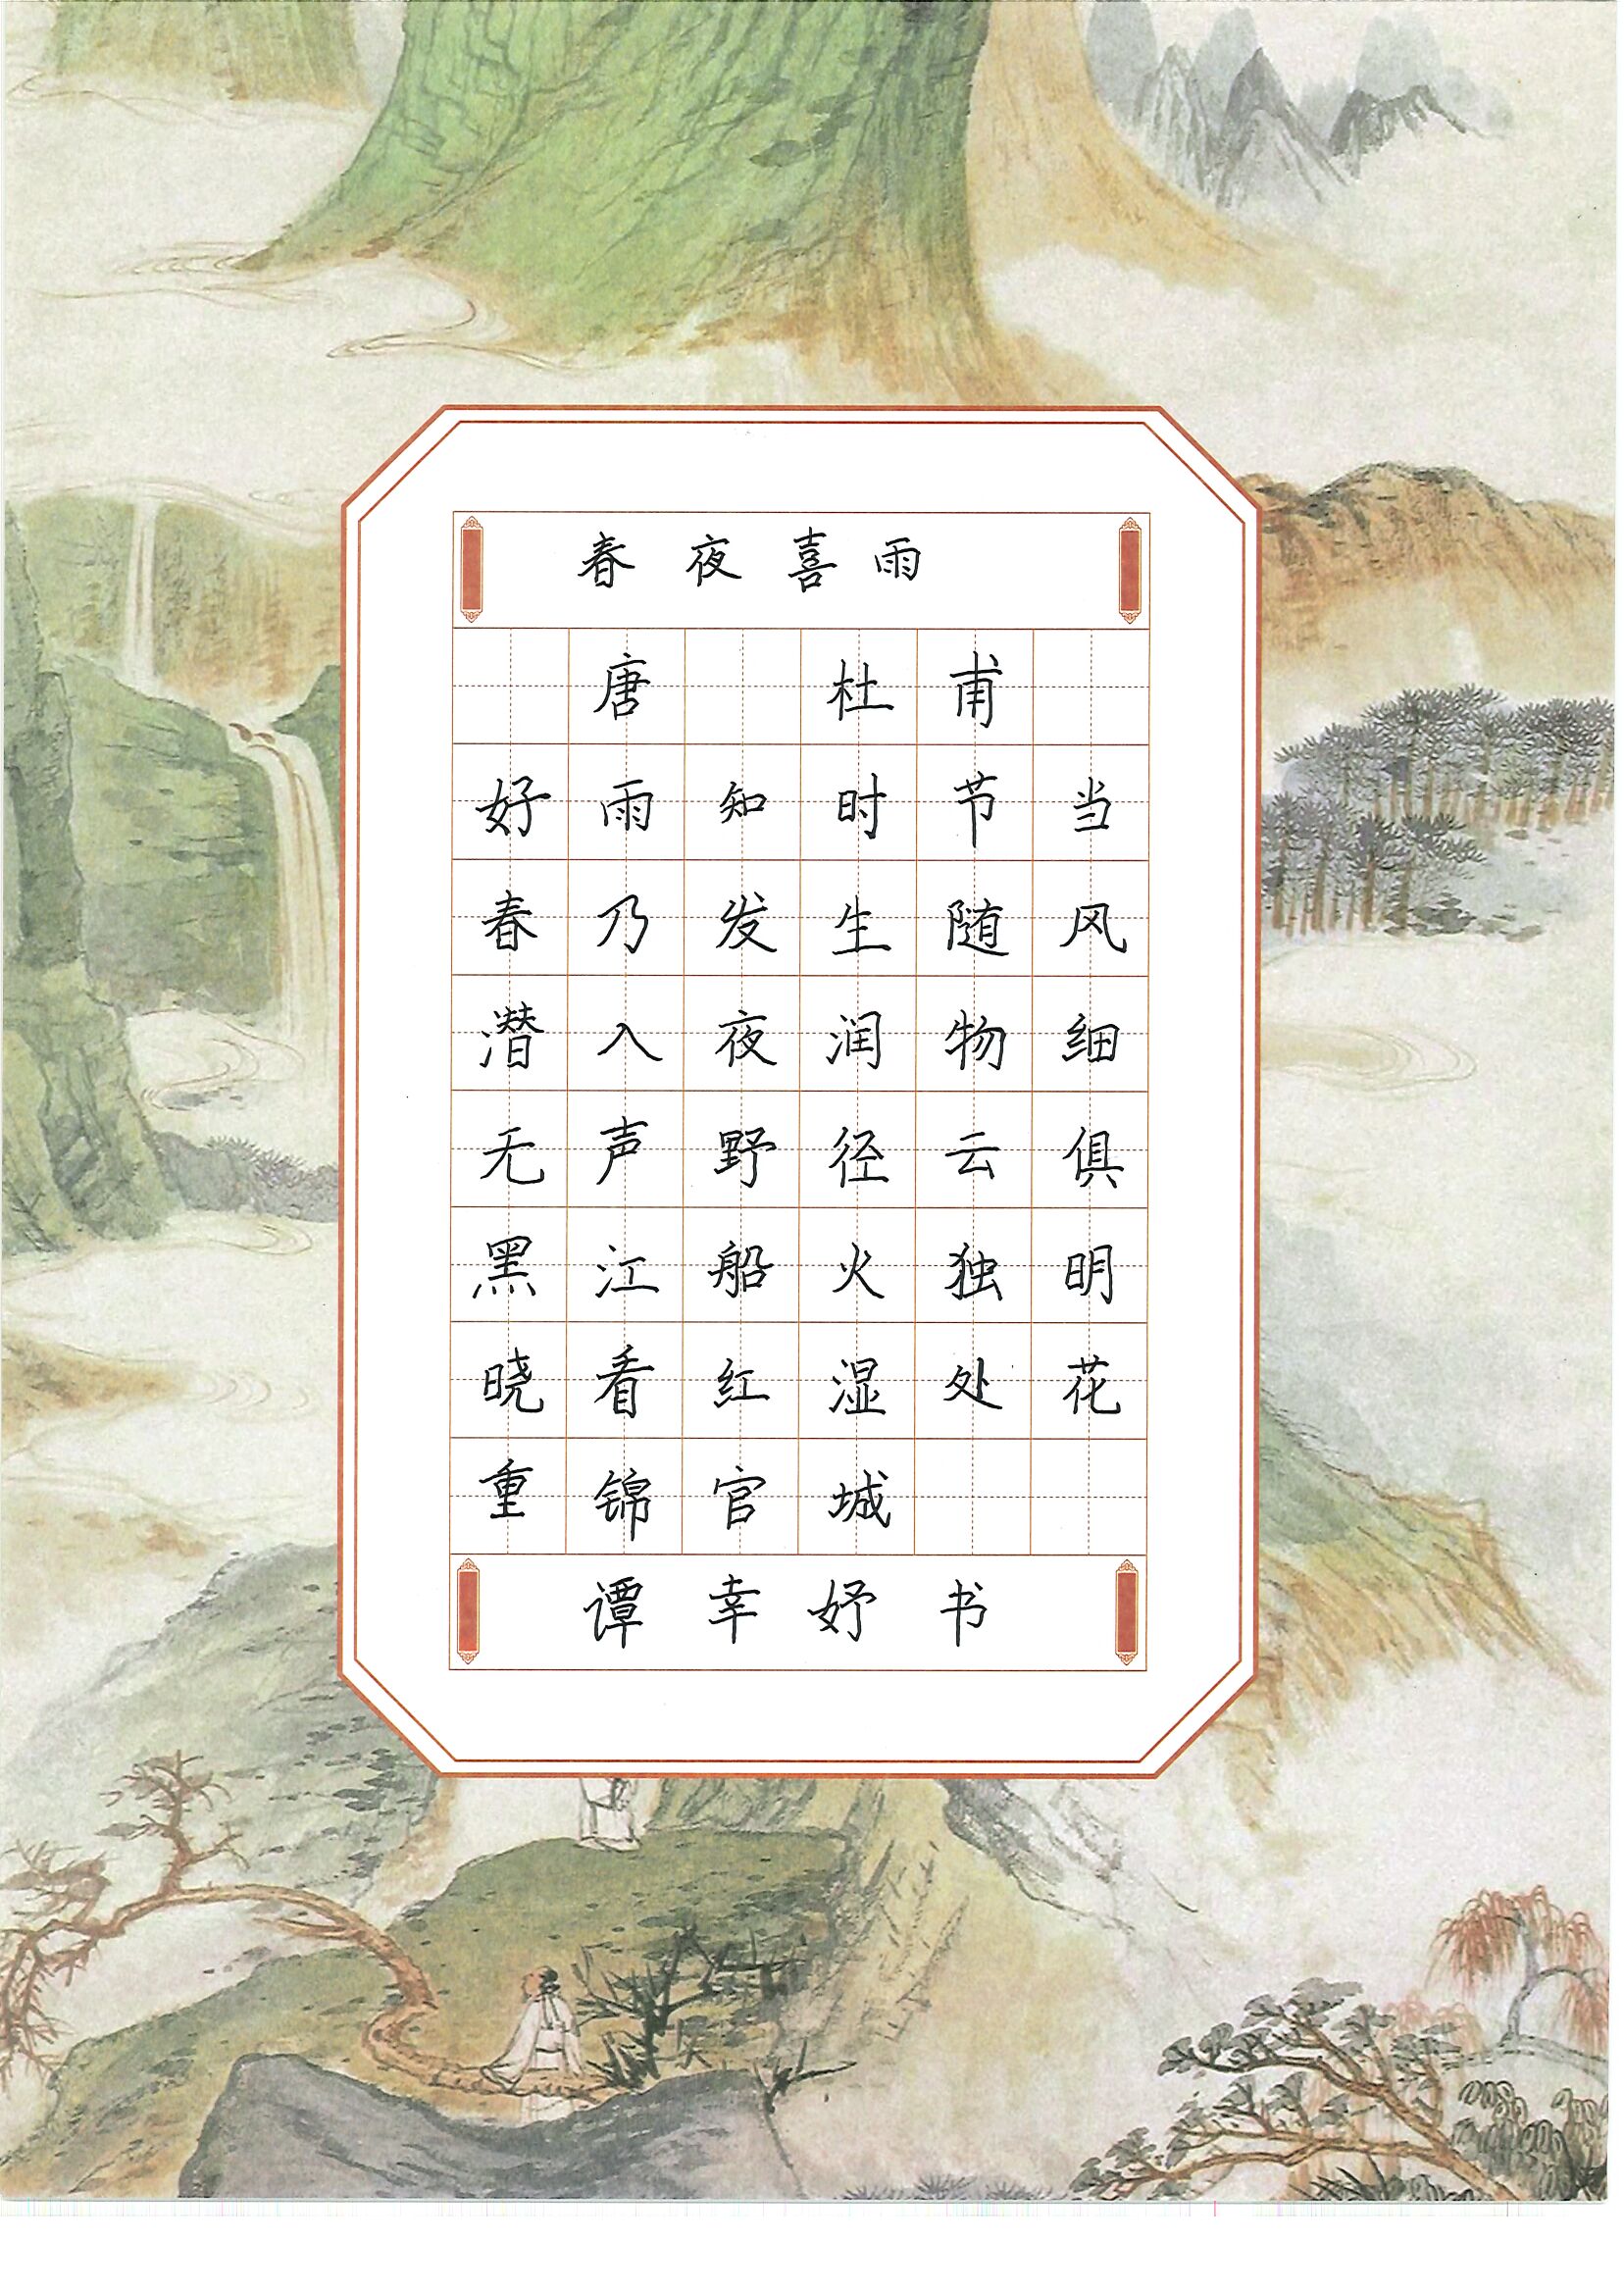 春夜喜雨
唐 杜甫
好雨知时节当
春乃发生随风
潜入夜润物细
无声野径云俱
黑江船火独明
晓看红湿处花
重锦官城
谭幸妤书